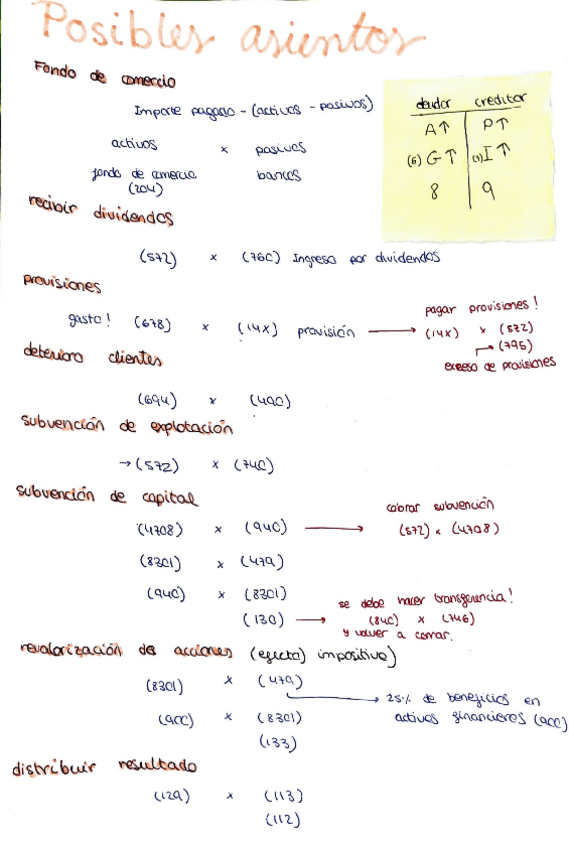 Posibles asientos
Fondo de comercio
Importe pagado - (activos - pasivos)
activos x pasivos
fondo de comercio bancos
(204)
deudor creditor
A↑ P↑
(6) G↑ (7) I↑
8 9
recibir dividendos
(572) x (760) Ingreso por dividendos
provisiones
gasto! (678) x (14X) provisión →
pagar provisiones!
(14X) x (572)
→ (795)
exceso de provisiones
deterioro clientes
(694) x (490)
subvención de explotación
→ (572) x (740)
subvención de capital
(4708) x (940) →
cobrar subvención
(572) x (4708)
(8301) x (479)
(940) x (8301)
(130) →
se debe hacer transferencia!
(840) x (746)
y volver a cerrar.
revalorización de acciones (efecto impositivo)
(8301) x (479)
→ 25% de beneficios en
activos financieros (900)
(900) x (8301)
(133)
distribuir resultado
(129) x (113)
(112)